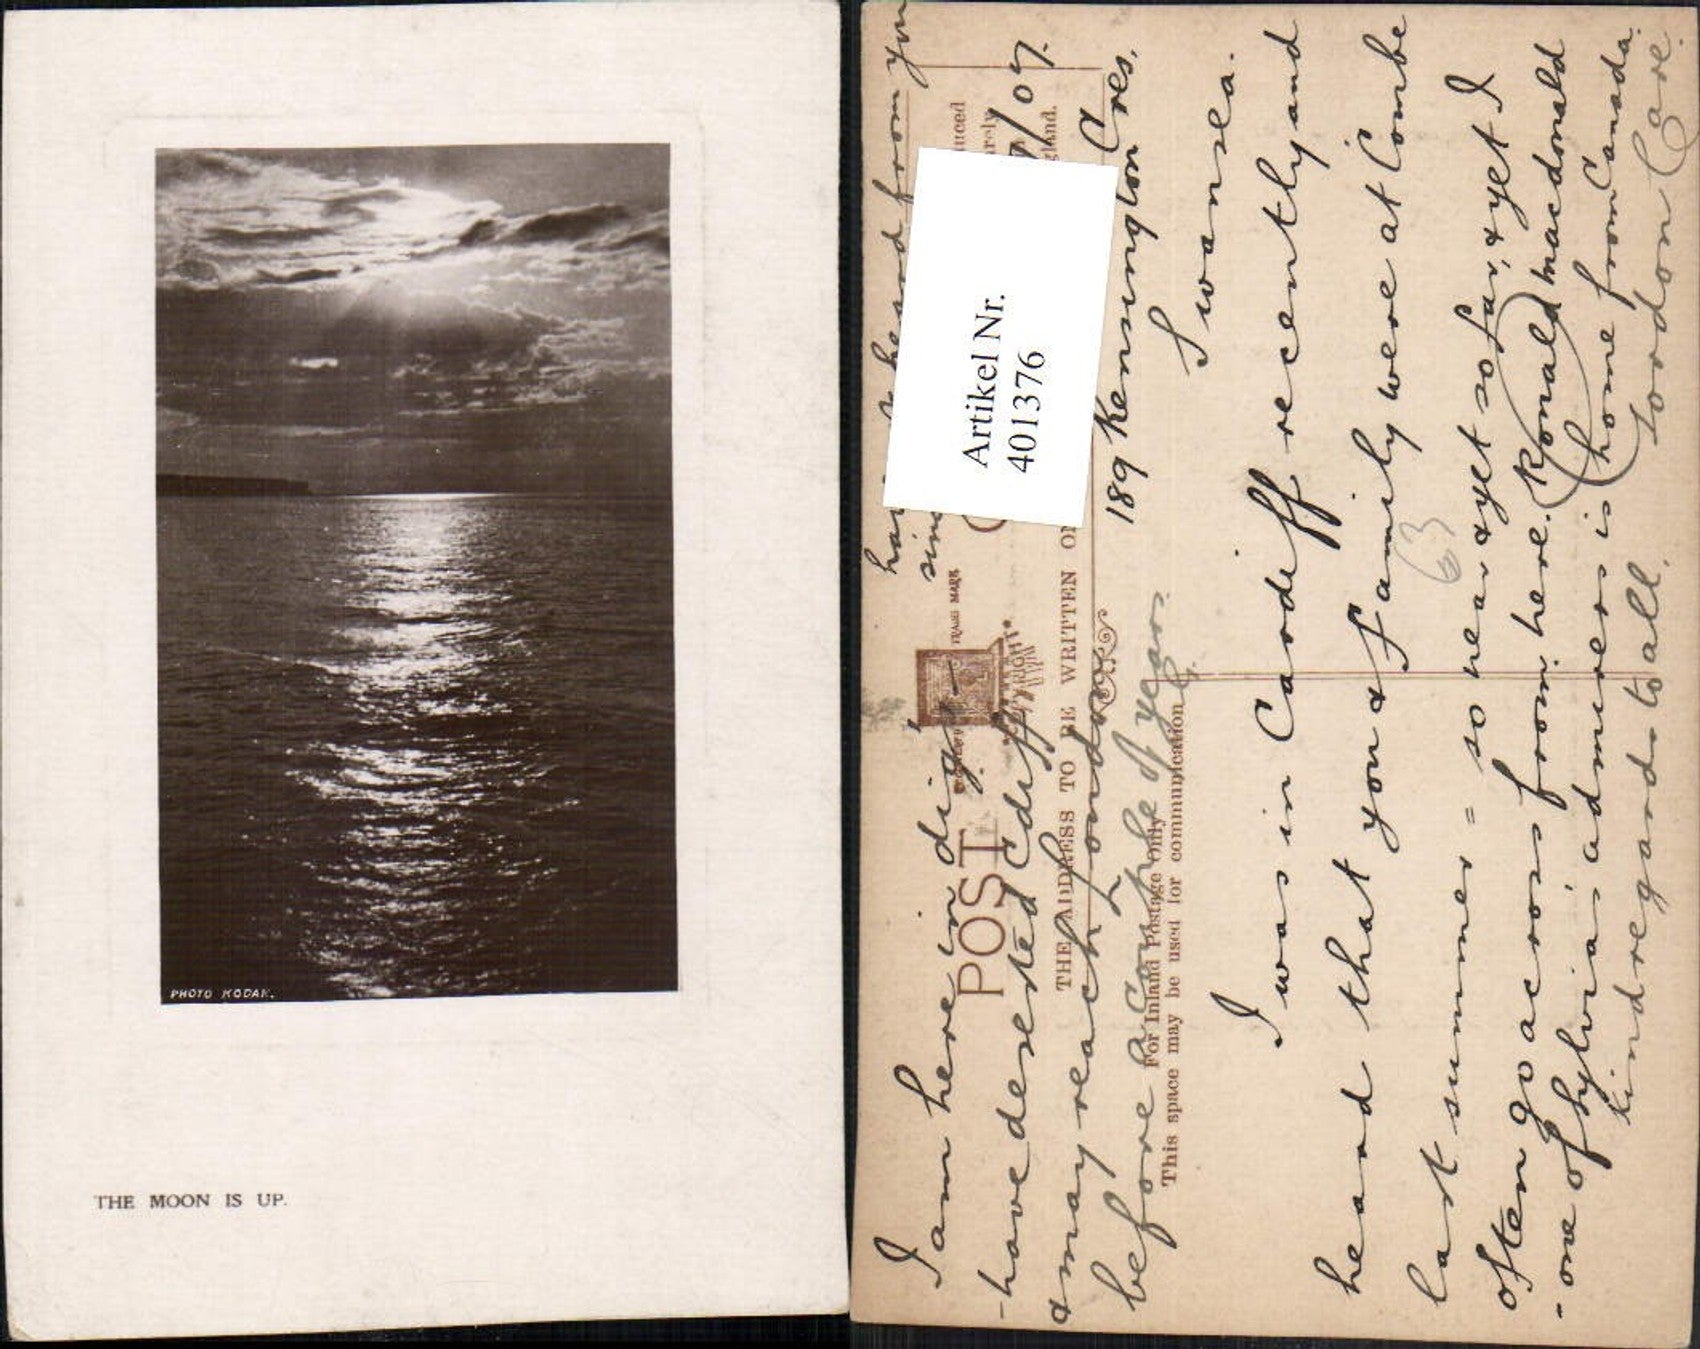 PHOTO KODAK.
THE MOON IS UP.
POST
TRADE MARK
THE ADDRESS TO BE WRITTEN
For Inland Postage Only
This space may be used for communication
Artikel Nr.
401376
/07.
189 Kensington Cres.
Swansea.
I was in Cardiff recently and
heard that you & family were at Combe
last summer = so near & yet so far, & yet I
often go across from here. Ronald Macdonald
- one of Sylvia's admirers is home from Canada.
kind regards to all. Gordon Care.
heard from you
I am here in dig
- have deserted Cdiff
& may reach London
before a couple of years.